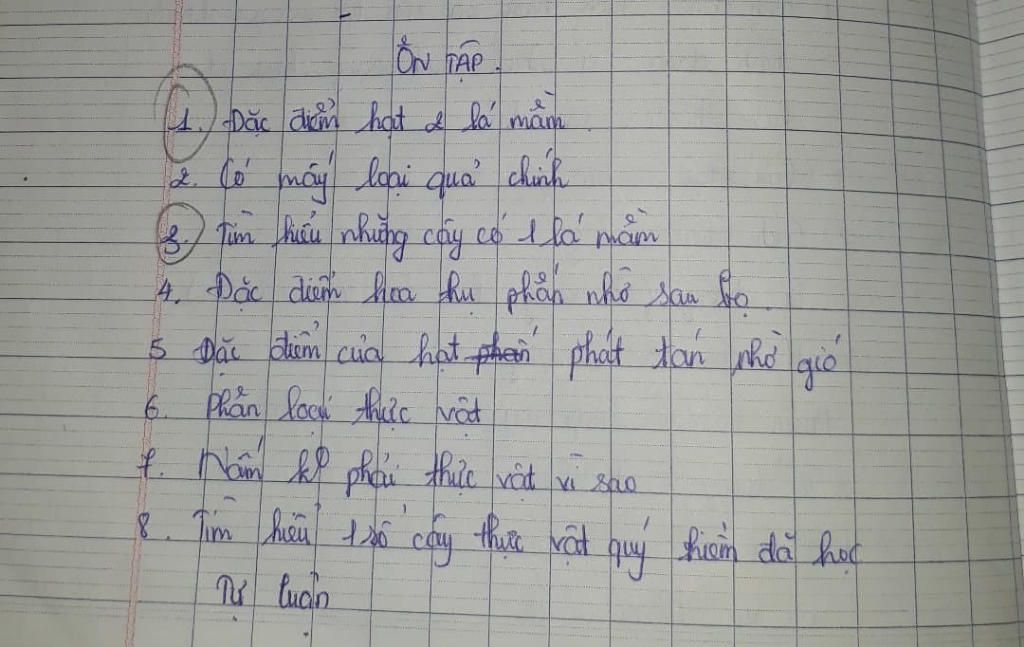 ÔN TẬP.
1. Đặc điểm hạt 2 lá mầm.
2. Có mấy loại quả chính
3. Tìm hiểu những cây có 1 lá mầm
4. Đặc điểm hoa thụ phấn nhờ sâu bọ.
5 Đặc điểm của hạt phấn phát tán nhờ gió
6. Phân loại thực vật
7. Nấm k phải thực vật vì sao
8. Tìm hiểu 1 số cây thực vật quý hiếm đã học
Tự luận